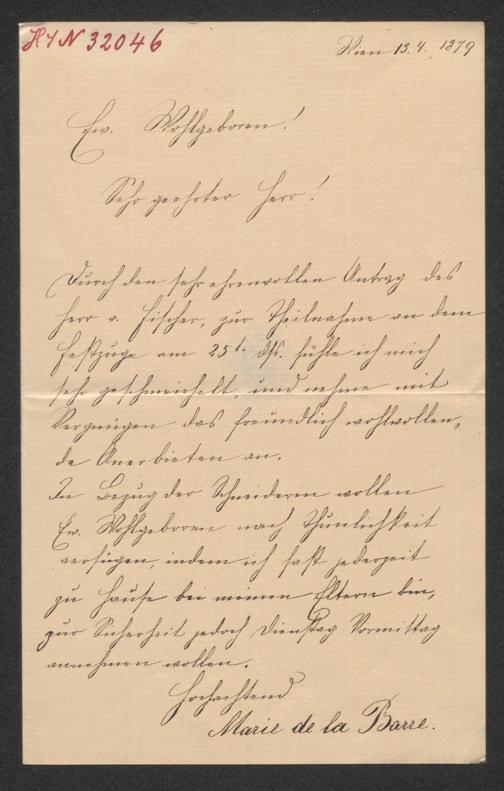 H I N 32046
Wien 13. 4. 1879
Ew. Wohlgeboren!
Sehr geehrter Herr!
Durch den sehr ehrenvollen Antrag des
Herr v. Fischer, zur Theilnahme an dem
Festzuge am 25t. dfs. fühle ich mich
sehr geschmeichelt, und nehme mit
Vergnügen das freundlich wohlwollen-
de Anerbieten an.
In Bezug der Schneiderin wollen
Ew. Wohlgeboren nach Thunlichkeit
verfügen, indem ich fast jederzeit
zu Hause bei meinen Eltern bin,
zur Sicherheit jedoch Dienstag Vormittag
annehmen wollen.
Hochachtend
Marie de la Barre.